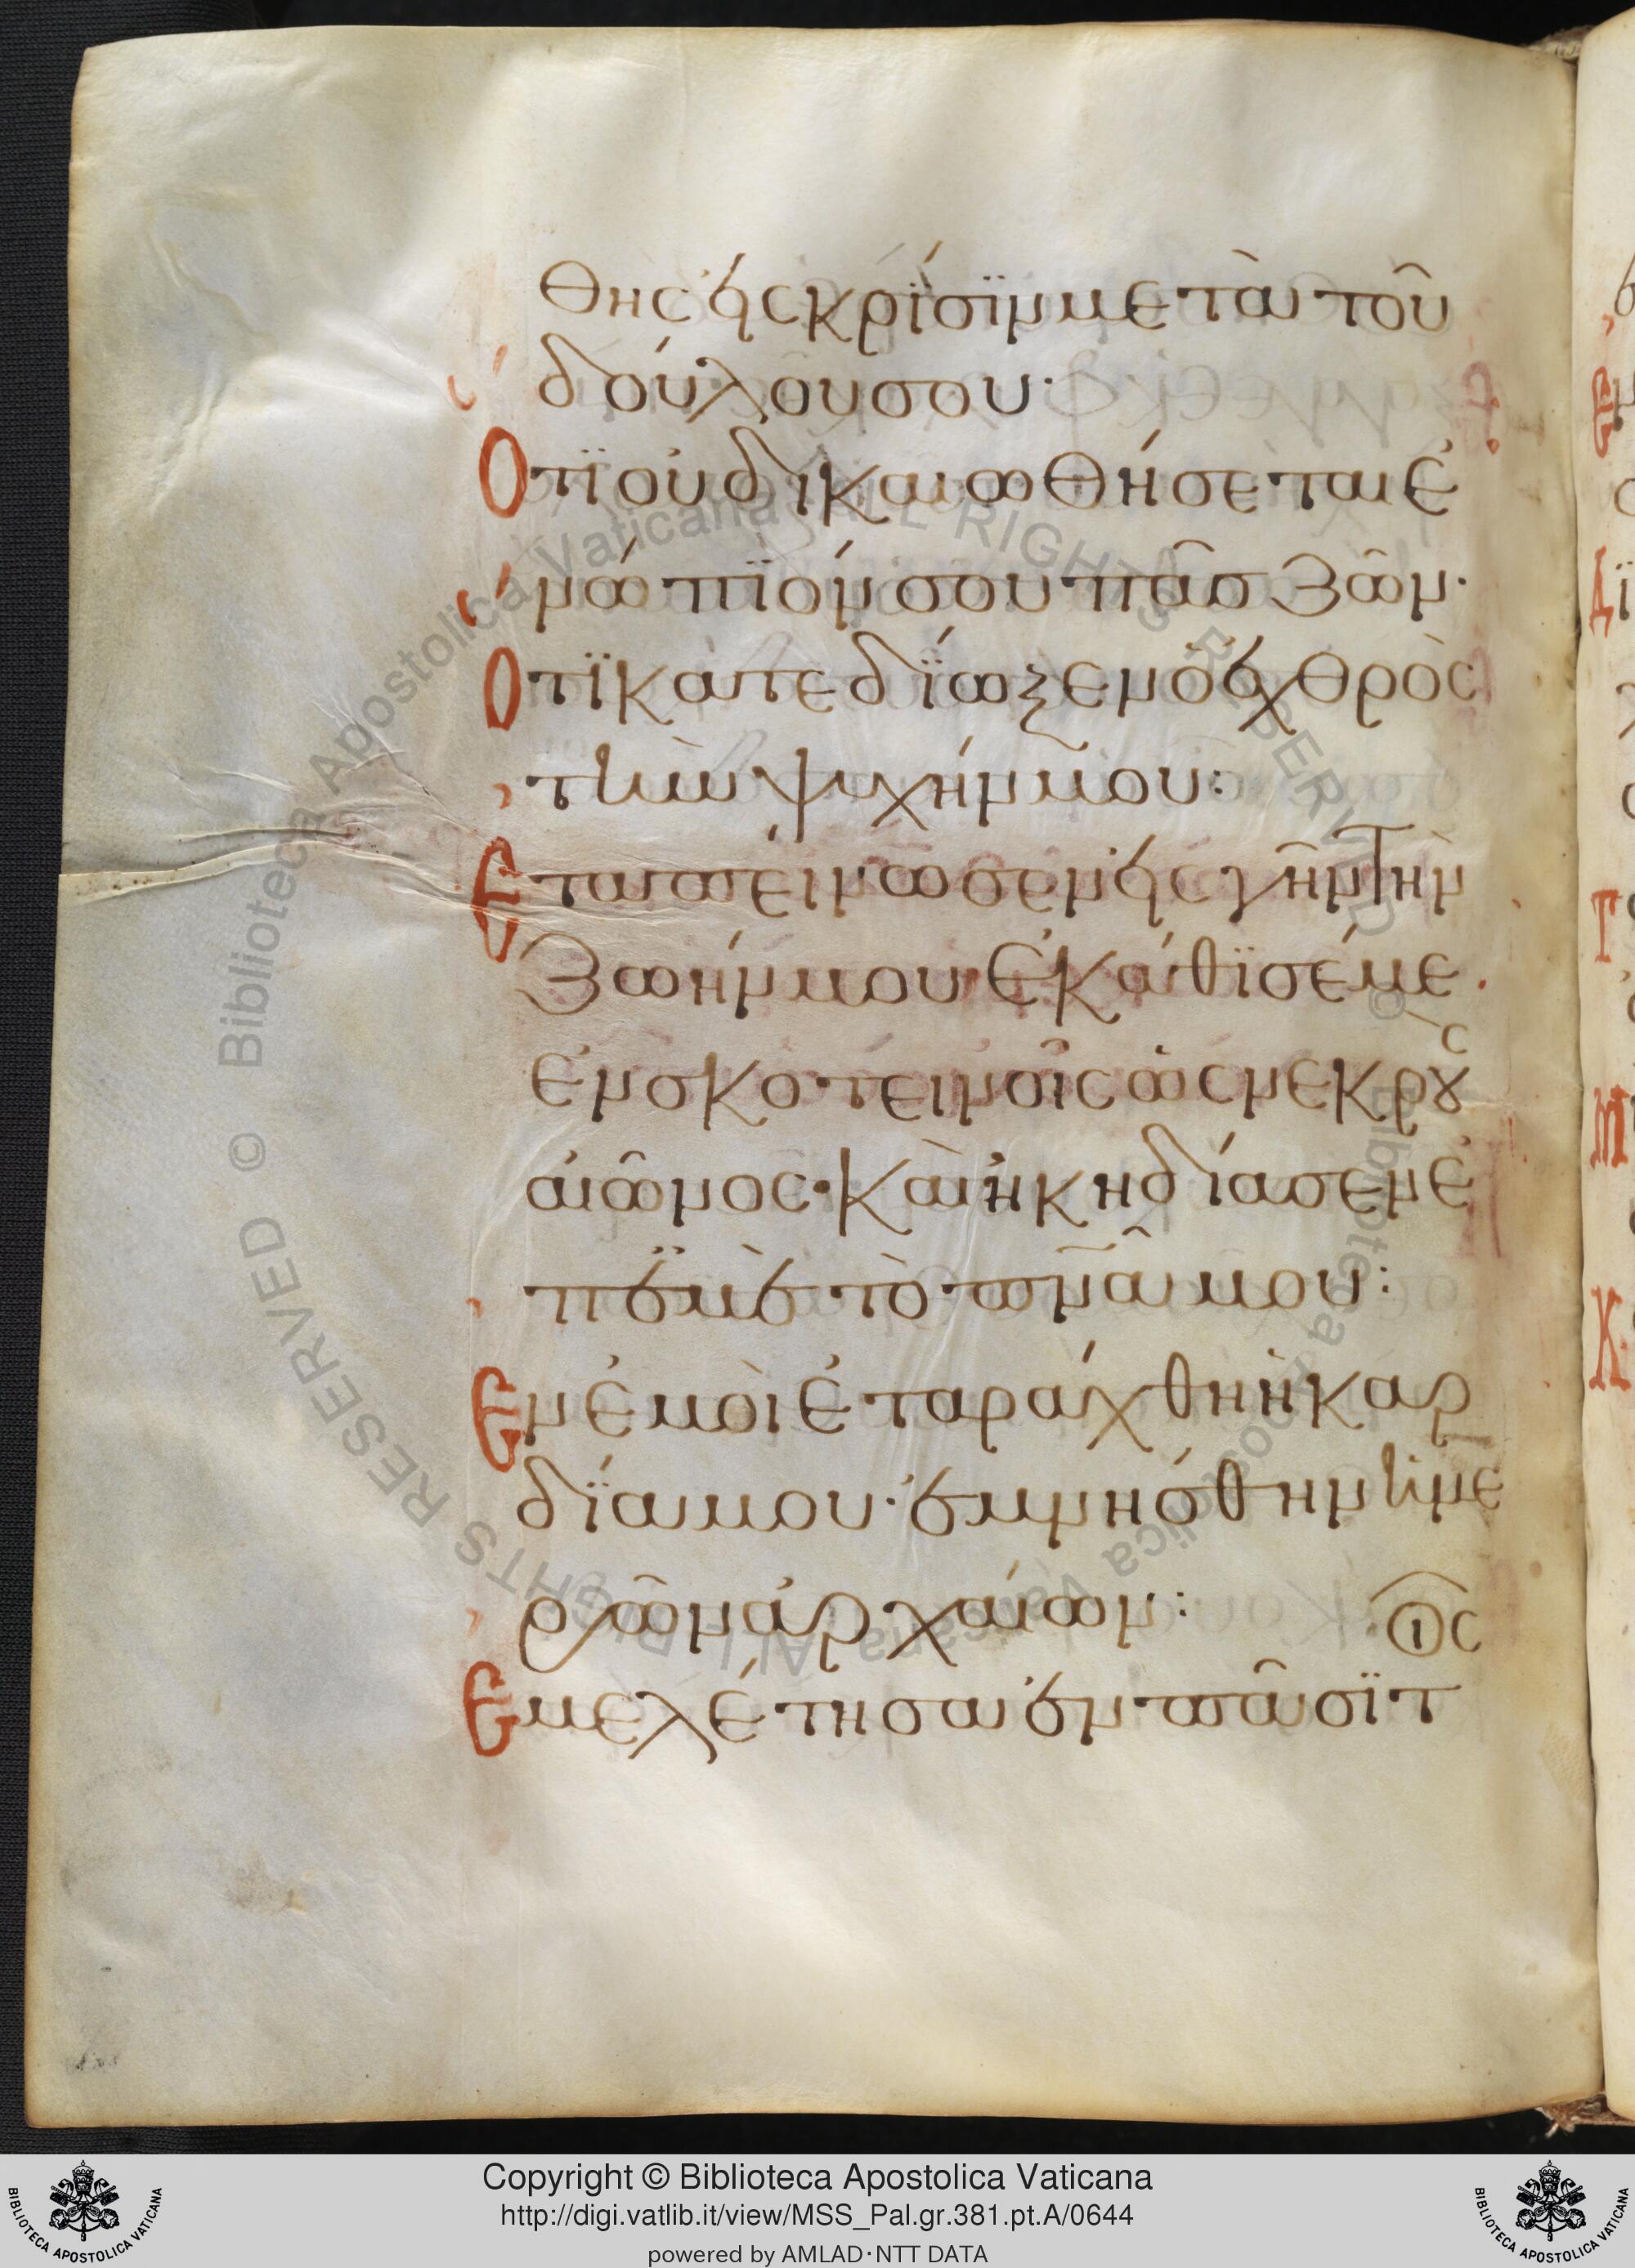 θης εἰς κρίσϊν μετὰ τοῦ
δούλου σου·
Οτϊ οὐ δικαιωθήσεται ἐ
νώπϊόν σου πᾶσ ζῶν·
Οτϊ κατεδΐωξεν ὁ ἐχθρὸς
τὴν ψυχήν μου:
Εταπείνωσεν εἰς γῆν τὴν
ζωήν μου· Ἐκάθϊσέ με
ἐν σκοτεινοῖς ὡς νεκροὺς
αἰῶνος· Καὶ ἠκηδίασεν ἐ
π ἐμὲ τὸ πν̅α̅ μου:
Εν ἐμοὶ ἐταράχθη ἡ καρ
δΐα μου· ἐμνήσθην ἡμε
ρῶν ἀρχαίων: ιος
Εμελέτησα ἐν πᾶσϊ τ
Copyright © Biblioteca Apostolica Vaticana
http://digi.vatlib.it/view/MSS_Pal.gr.381.pt.A/0644
powered by AMLAD·NTT DATA
BIBLIOTECA APOSTOLICA VATICANA
BIBLIOTECA APOSTOLICA VATICANA
© Biblioteca Apostolica Vaticana ALL RIGHTS RESERVED
© Biblioteca Apostolica Vaticana ALL RIGHTS RESERVED